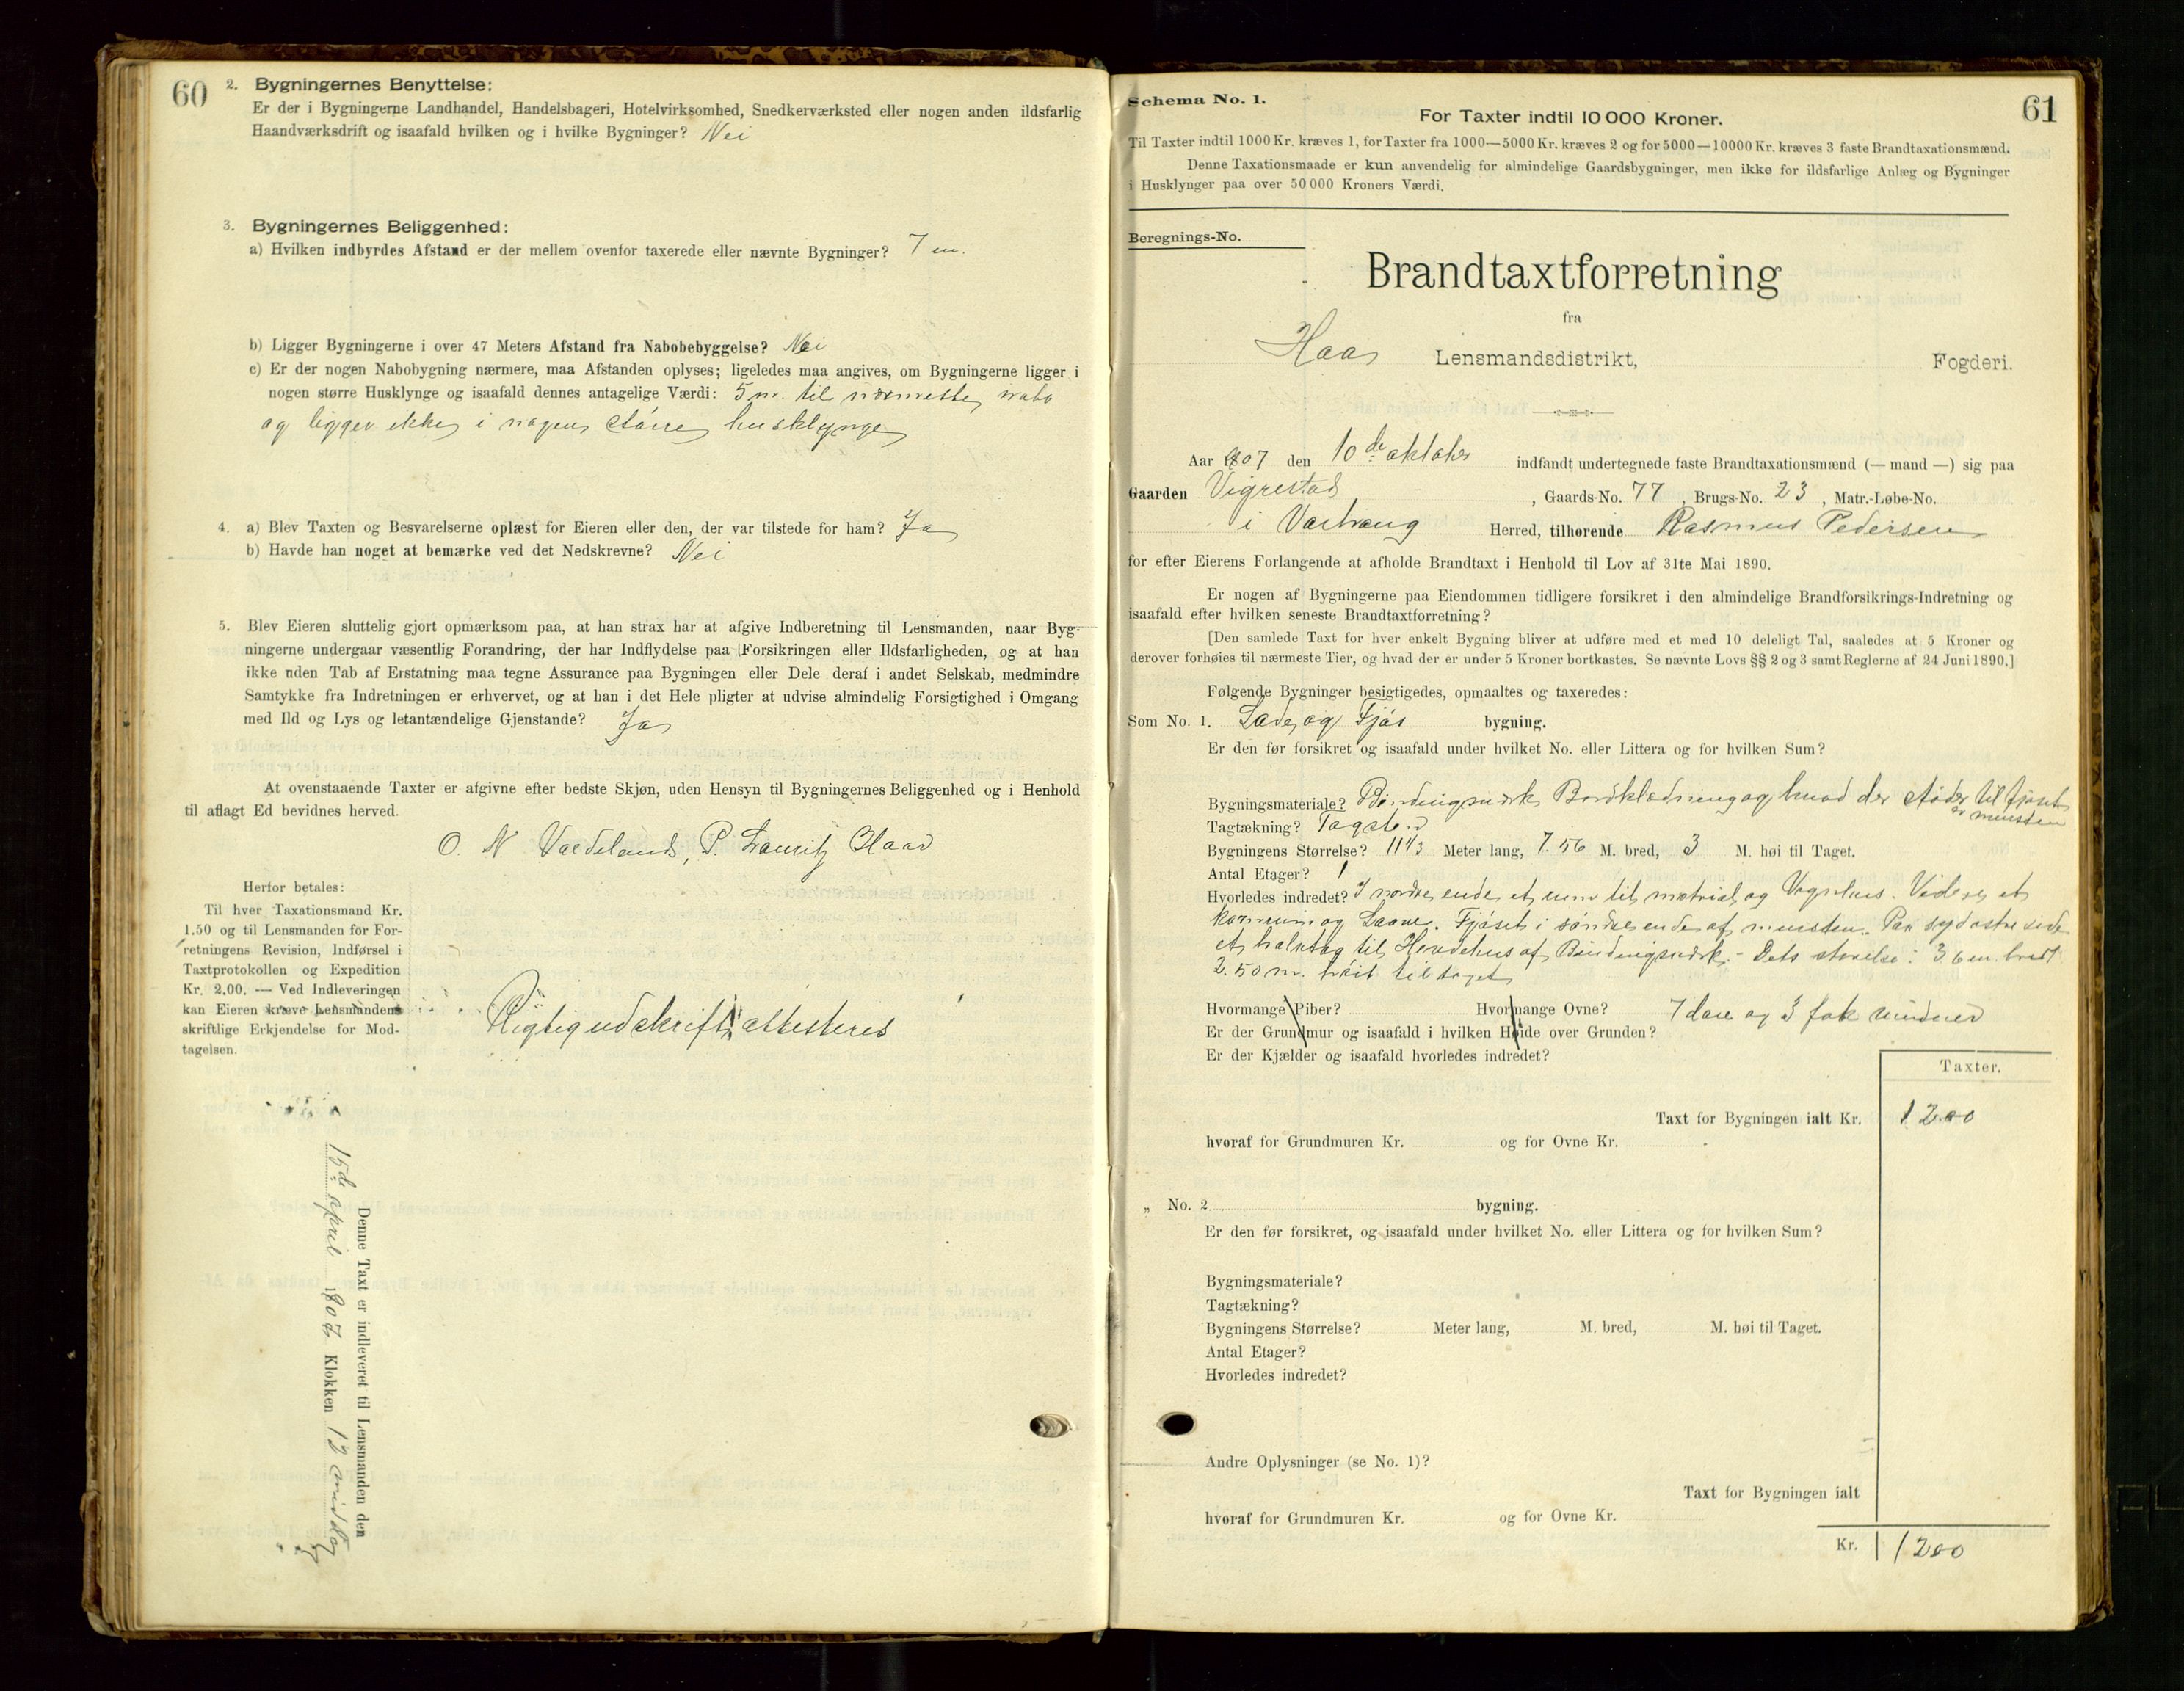 60
2. Bygningernes Benyttelse:
Er der i Bygningerne Landhandel, Handelsbageri, Hotelvirksomhed, Snedkerværksted eller nogen anden ildsfarlig
Haandværksdrift og isaafald hvilken og i hvilke Bygninger? Nei
3. Bygningernes Beliggenhed:
a) Hvilken indbyrdes Afstand er der mellem ovenfor taxerede eller nævnte Bygninger? 7 m.
b) Ligger Bygningerne i over 47 Meters Afstand fra Nabobebyggelse? Nei
c) Er der nogen Nabobygning nærmere, maa Afstanden oplyses; ligeledes maa angives, om Bygningerne ligger i
nogen større Husklynge og isaafald dennes antagelige Værdi: 5 m. til nærmeste nabo
og ligger ikke i nogen større husklynge
4. a) Blev Taxten og Besvarelserne oplæst for Eieren eller den, der var tilstede for ham? Ja
b) Havde han noget at bemærke ved det Nedskrevne? Nei
5. Blev Eieren sluttelig gjort opmærksom paa, at han strax har at afgive Indberetning til Lensmanden, naar Byg-
ningerne undergaar væsentlig Forandring, der har Indflydelse paa Forsikringen eller Ildsfarligheden, og at han
ikke uden Tab af Erstatning maa tegne Assurance paa Bygningen eller Dele deraf i andet Selskab, medmindre
Samtykke fra Indretningen er erhvervet, og at han i det Hele pligter at udvise almindelig Forsigtighed i Omgang
med Ild og Lys og letantændelige Gjenstande? Ja
At ovenstaaende Taxter er afgivne efter bedste Skjøn, uden Hensyn til Bygningernes Beliggenhed og i Henhold
til aflagt Ed bevidnes herved.
O. N. Vaedeland, P. Lauritz
Herfor betales:
Til hver Taxationsmand Kr.
1.50 og til Lensmanden for For-
retningens Revision, Indførsel i
Taxtprotokollen og Expedition
Kr. 2.00. — Ved Indleveringen
kan Eieren kræve Lensmandens
skriftlige Erkjendelse for Mod-
tagelsen.
Rigtig udskrift attesteres
Denne Taxt er indleveret til Lensmanden den
15de april 1907 Klokken 12 middag
61
Schema No. 1.
For Taxter indtil 10 000 Kroner.
Til Taxter indtil 1000 Kr. kræves 1, for Taxter fra 1000—5000 Kr. kræves 2 og for 5000—10000 Kr. kræves 3 faste Brandtaxationsmænd.
Denne Taxationsmaade er kun anvendelig for almindelige Gaardsbygninger, men ikke for ildsfarlige Anlæg og Bygninger
i Husklynger paa over 50 000 Kroners Værdi.
Beregnings-No.
Brandtaxtforretning
fra
Haa Lensmandsdistrikt, Fogderi.
Aar 1907 den 10de oktober indfandt undertegnede faste Brandtaxationsmænd (— mand —) sig paa
Gaarden Vigrestad, Gaards-No. 77, Brugs-No. 23, Matr.-Løbe-No.
i Varhaug Herred, tilhørende Rasmus Pedersen
for efter Eierens Forlangende at afholde Brandtaxt i Henhold til Lov af 31te Mai 1890.
Er nogen af Bygningerne paa Eiendommen tidligere forsikret i den almindelige Brandforsikrings-Indretning og
isaafald efter hvilken seneste Brandtaxtforretning?
[Den samlede Taxt for hver enkelt Bygning bliver at udføre med et med 10 deleligt Tal, saaledes at 5 Kroner og
derover forhøies til nærmeste Tier, og hvad der er under 5 Kroner bortkastes. Se nævnte Lovs §§ 2 og 3 samt Reglerne af 24 Juni 1890.]
Følgende Bygninger besigtigedes, opmaaltes og taxeredes:
Som No. 1. Lade og Fjøs bygning.
Er den før forsikret og isaafald under hvilket No. eller Littera og for hvilken Sum?
Bygningsmateriale? Bindingsverk Bordklædning og hvad der støder til fjøset
er mursten
Tagtækning? Tagsten
Bygningens Størrelse? 11 1/3 Meter lang, 7.56 M. bred, 3 M. høi til Taget.
Antal Etager? 1
Hvorledes indredet? I nordre ende et rum til matrial og Vognhus. Videre et
kornrum og Laave. Fjøset i søndre ende af mursten. Paa sydøstre side
et halvtag til Hendehus af Bindingsverk. - Dets størrelse: 3 6 m. bredt
2.50 m. høit til taget
Hvormange Piber? Hvormange Ovne? 7 døre og 3 fak vinduer
Er der Grundmur og isaafald i hvilken Høide over Grunden?
Er der Kjælder og isaafald hvorledes indredet?
Taxter.
Taxt for Bygningen ialt Kr. 1200
hvoraf for Grundmuren Kr. og for Ovne Kr.
„ No. 2. bygning.
Er den før forsikret, og isaafald under hvilket No. eller Littera og for hvilken Sum?
Bygningsmateriale?
Tagtækning?
Bygningens Størrelse? Meter lang, M. bred, M. høi til Taget.
Antal Etager?
Hvorledes indredet?
Andre Oplysninger (se No. 1)?
Taxt for Bygningen ialt
hvoraf for Grundmuren Kr. og for Ovne Kr.
Kr. 1200